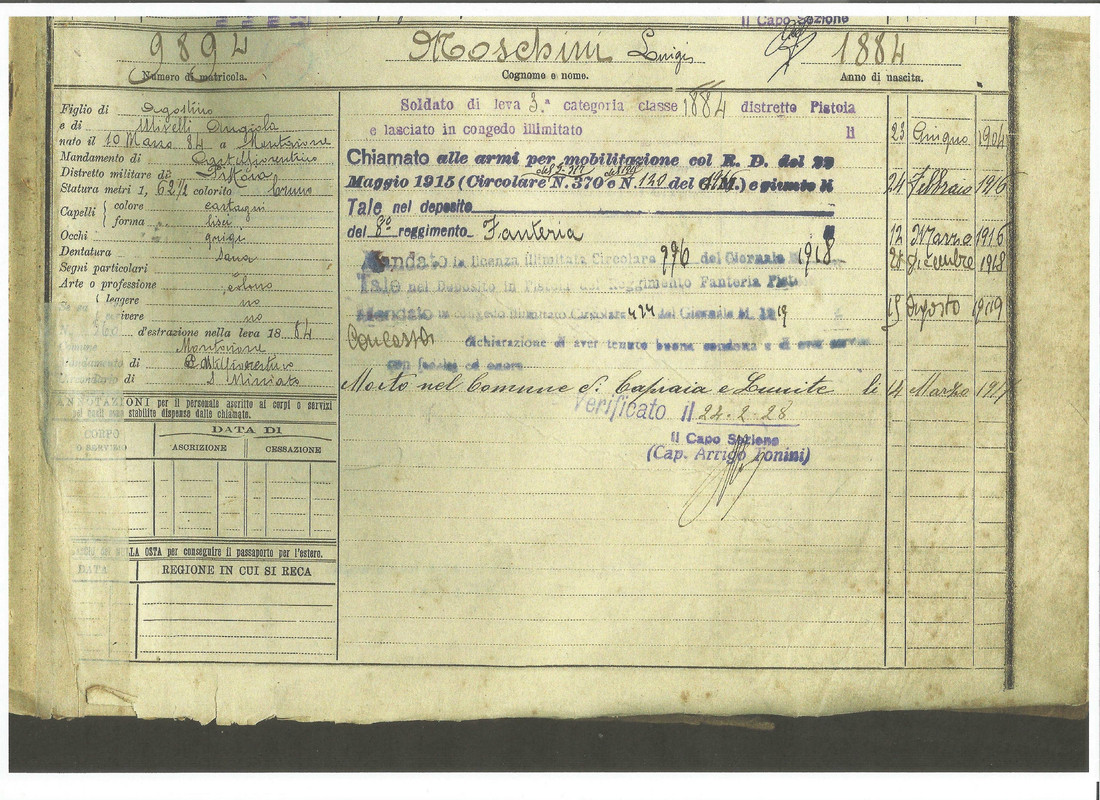 Il Capo Sezione
9894 Moschini Luigi 1884
Numero di matricola. Cognome e nome. Anno di nascita.
Figlio di Agostino
e di Miselli Angiola
nato il 10 Marzo 84 a Montaione
Mandamento di Castelfiorentino
Distretto militare di Pistoia
Statura metri 1, 62½ colorito bruno
Capelli colore castagni
forma lisci
Occhi grigi
Dentatura sana
Segni particolari
Arte o professione colono
leggere no
scrivere no
d'estrazione nella leva 18 84
Montaione
di Castelfiorentino
di S. Miniato
ANNOTAZIONI per il personale ascritto ai corpi o servizi
stabilite dispense dalle chiamate.
CORPO DATA DI
O SERVIZIO ASCRIZIONE CESSAZIONE
OSTA per conseguire il passaporto per l'estero.
DATA REGIONE IN CUI SI RECA
Soldato di leva 3.ª categoria classe 1884 distretto Pistoia
e lasciato in congedo illimitato li 23 Giugno 1904
Chiamato alle armi per mobilitazione col R. D. del 22
Maggio 1915 (Circolare N. 370 e N. 120 del G. M.) e giunto li 24 Febbraio 1916
Tale nel deposito
del 8º reggimento Fanteria 12 Marzo 1916
Mandato in licenza illimitata Circolare del Giornale M. 1918 Dicembre 1918
Tale nel Deposito in Pistoia del Reggimento Fanteria
Mandato in congedo illimitato Circolare 424 del Giornale M. 1919 15 Agosto 1919
Concessa dichiarazione di aver tenuto buona condotta e di aver servito
con fedeltà ed onore
Morto nel Comune di Capraia e Limite li 4 Marzo
Verificato il 22-2-28
Il Capo Sezione
(Cap. Arrigo Fonini)